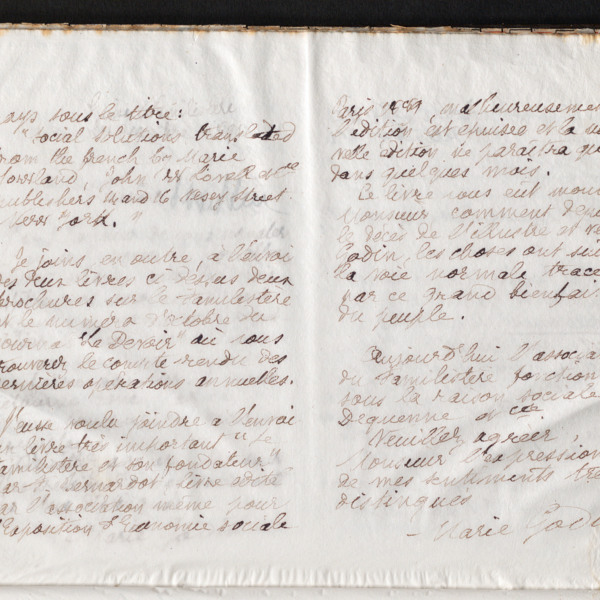 ays sous le titre:
"Social solutions translated
from the french by Marie
Howland, John W Lovell & Cie
publishers 14 and 16 Vesey street
New York."
Je joins, en outre, à l'envoi
des deux livres ci-dessus deux
brochures sur le familistère
et le numéro d'octobre du
journal "Le Devoir" où vous
trouverez le compte rendu des
dernières opérations annuelles.
J'eusse voulu joindre à l'envoi
un livre très important "Le
familistère et son fondateur"
par Bernardot, livre édité
par l'association même pour
l'Exposition d'Economie sociale
Paris 1889, malheureusement
l'édition est épuisée et la nou
velle édition ne paraîtra que
dans quelques mois.
Ce livre vous eût montré
Monsieur comment depuis
le décès de l'illustre et re
Godin, les choses ont suivi
la voie normale tracée
par ce grand bienfai
du peuple.
Aujourd'hui l'associa
du familistère fonction
sous la raison sociale
Dequenne et Cie
Veuillez agréer,
Monsieur l'expression
de mes sentiments très
distingués
Marie Godin